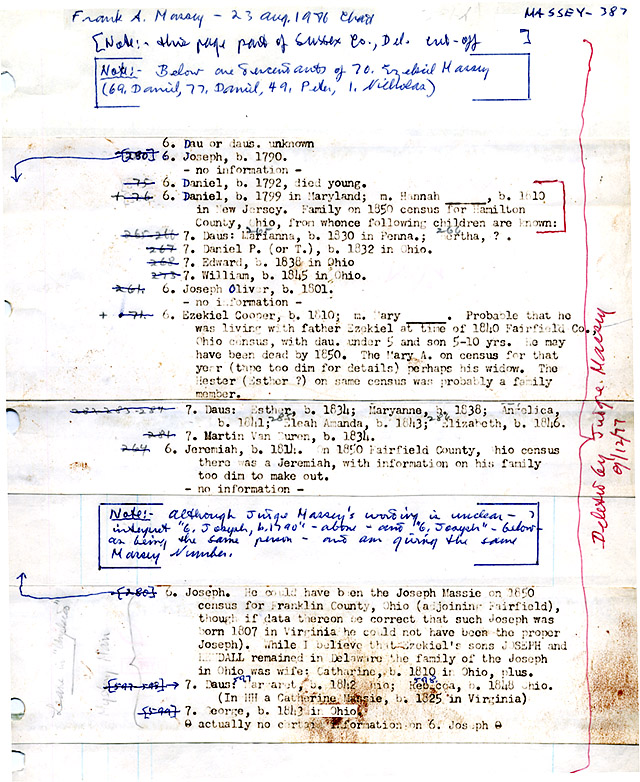 Frank A. Massey - 23 Aug. 1986 Chart
MASSEY - 387
[Note:- this page part of Sussex Co., Del. cut-off ]
Note:- Below are descendants of 70. Ezekiel Massey
(69. Daniel, 77. Daniel, 49. Peter, 1. Nicholas)
6. Dau or daus. unknown
[280] 6. Joseph, b. 1790.
- no information -
75 6. Daniel, b. 1792, died young.
+ 76 6. Daniel, b. 1799 in Maryland; m. Hannah _____, b. 1810
in New Jersey. Family on 1850 census for Hamilton
County, Ohio, from whonce following children are known:
265-266 7. Daus: Marianna, b. 1830 in Penna.; Bertha, ? .
267 7. Daniel P. (or T.), b. 1832 in Ohio.
268 7. Edward, b. 1838 in Ohio
273 7. William, b. 1845 in Ohio.
264 6. Joseph Oliver, b. 1801.
- no information -
+ 6. Ezekiel Cooper, b. 1810; m. Mary _____. Probable that he
was living with father Ezekiel at time of 1840 Fairfield Co.
Ohio census, with dau. under 5 and son 5-10 yrs. He may
have been dead by 1850. The Mary A. on census for that
year (tape too dim for details) perhaps his widow. The
Hester (Esther ?) on same census was probably a family
member.
282-283-284 7. Daus: Esther, b. 1834; Maryanne, b. 1838; Angelica,
b. 1841; Eleah Amanda, b. 1843; Elizabeth, b. 1846.
281 7. Martin Van Buren, b. 1834.
264 6. Jeremiah, b. 1814. On 1850 Fairfield County, Ohio census
there was a Jeremiah, with information on his family
too dim to make out.
- no information -
Note:- Although Judge Massey's wording is unclear - I
interpret "6. Joseph, b. 1790" - above - and "6. Joseph" - below -
as being the same person - and am giving the same
Massey Number.
[280] 6. Joseph. He could have been the Joseph Massie on 1850
census for Franklin County, Ohio (adjoining Fairfield),
though if data thereon be correct that such Joseph was
born 1807 in Virginia he could not have been the proper
Joseph). While I believe that Ezekiel's sons JOSEPH and
KENDALL remained in Delaware the family of the Joseph
in Ohio was wife: Catharine, b. 1810 in Ohio, plus.
[597-598] 7. Daus: Margaret, b. 1842 Ohio; Rebecca, b. 1848 Ohio.
(In HH a Catherine Massie, b. 1825 in Virginia)
[599] 7. George, b. 1843 in Ohio
θ actually no certain information on 6. Joseph θ
Deleted by Judge Massey
9/12/77